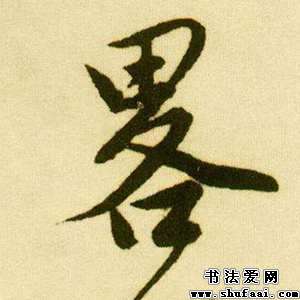 畧
书法爱网
www.shufaai.com